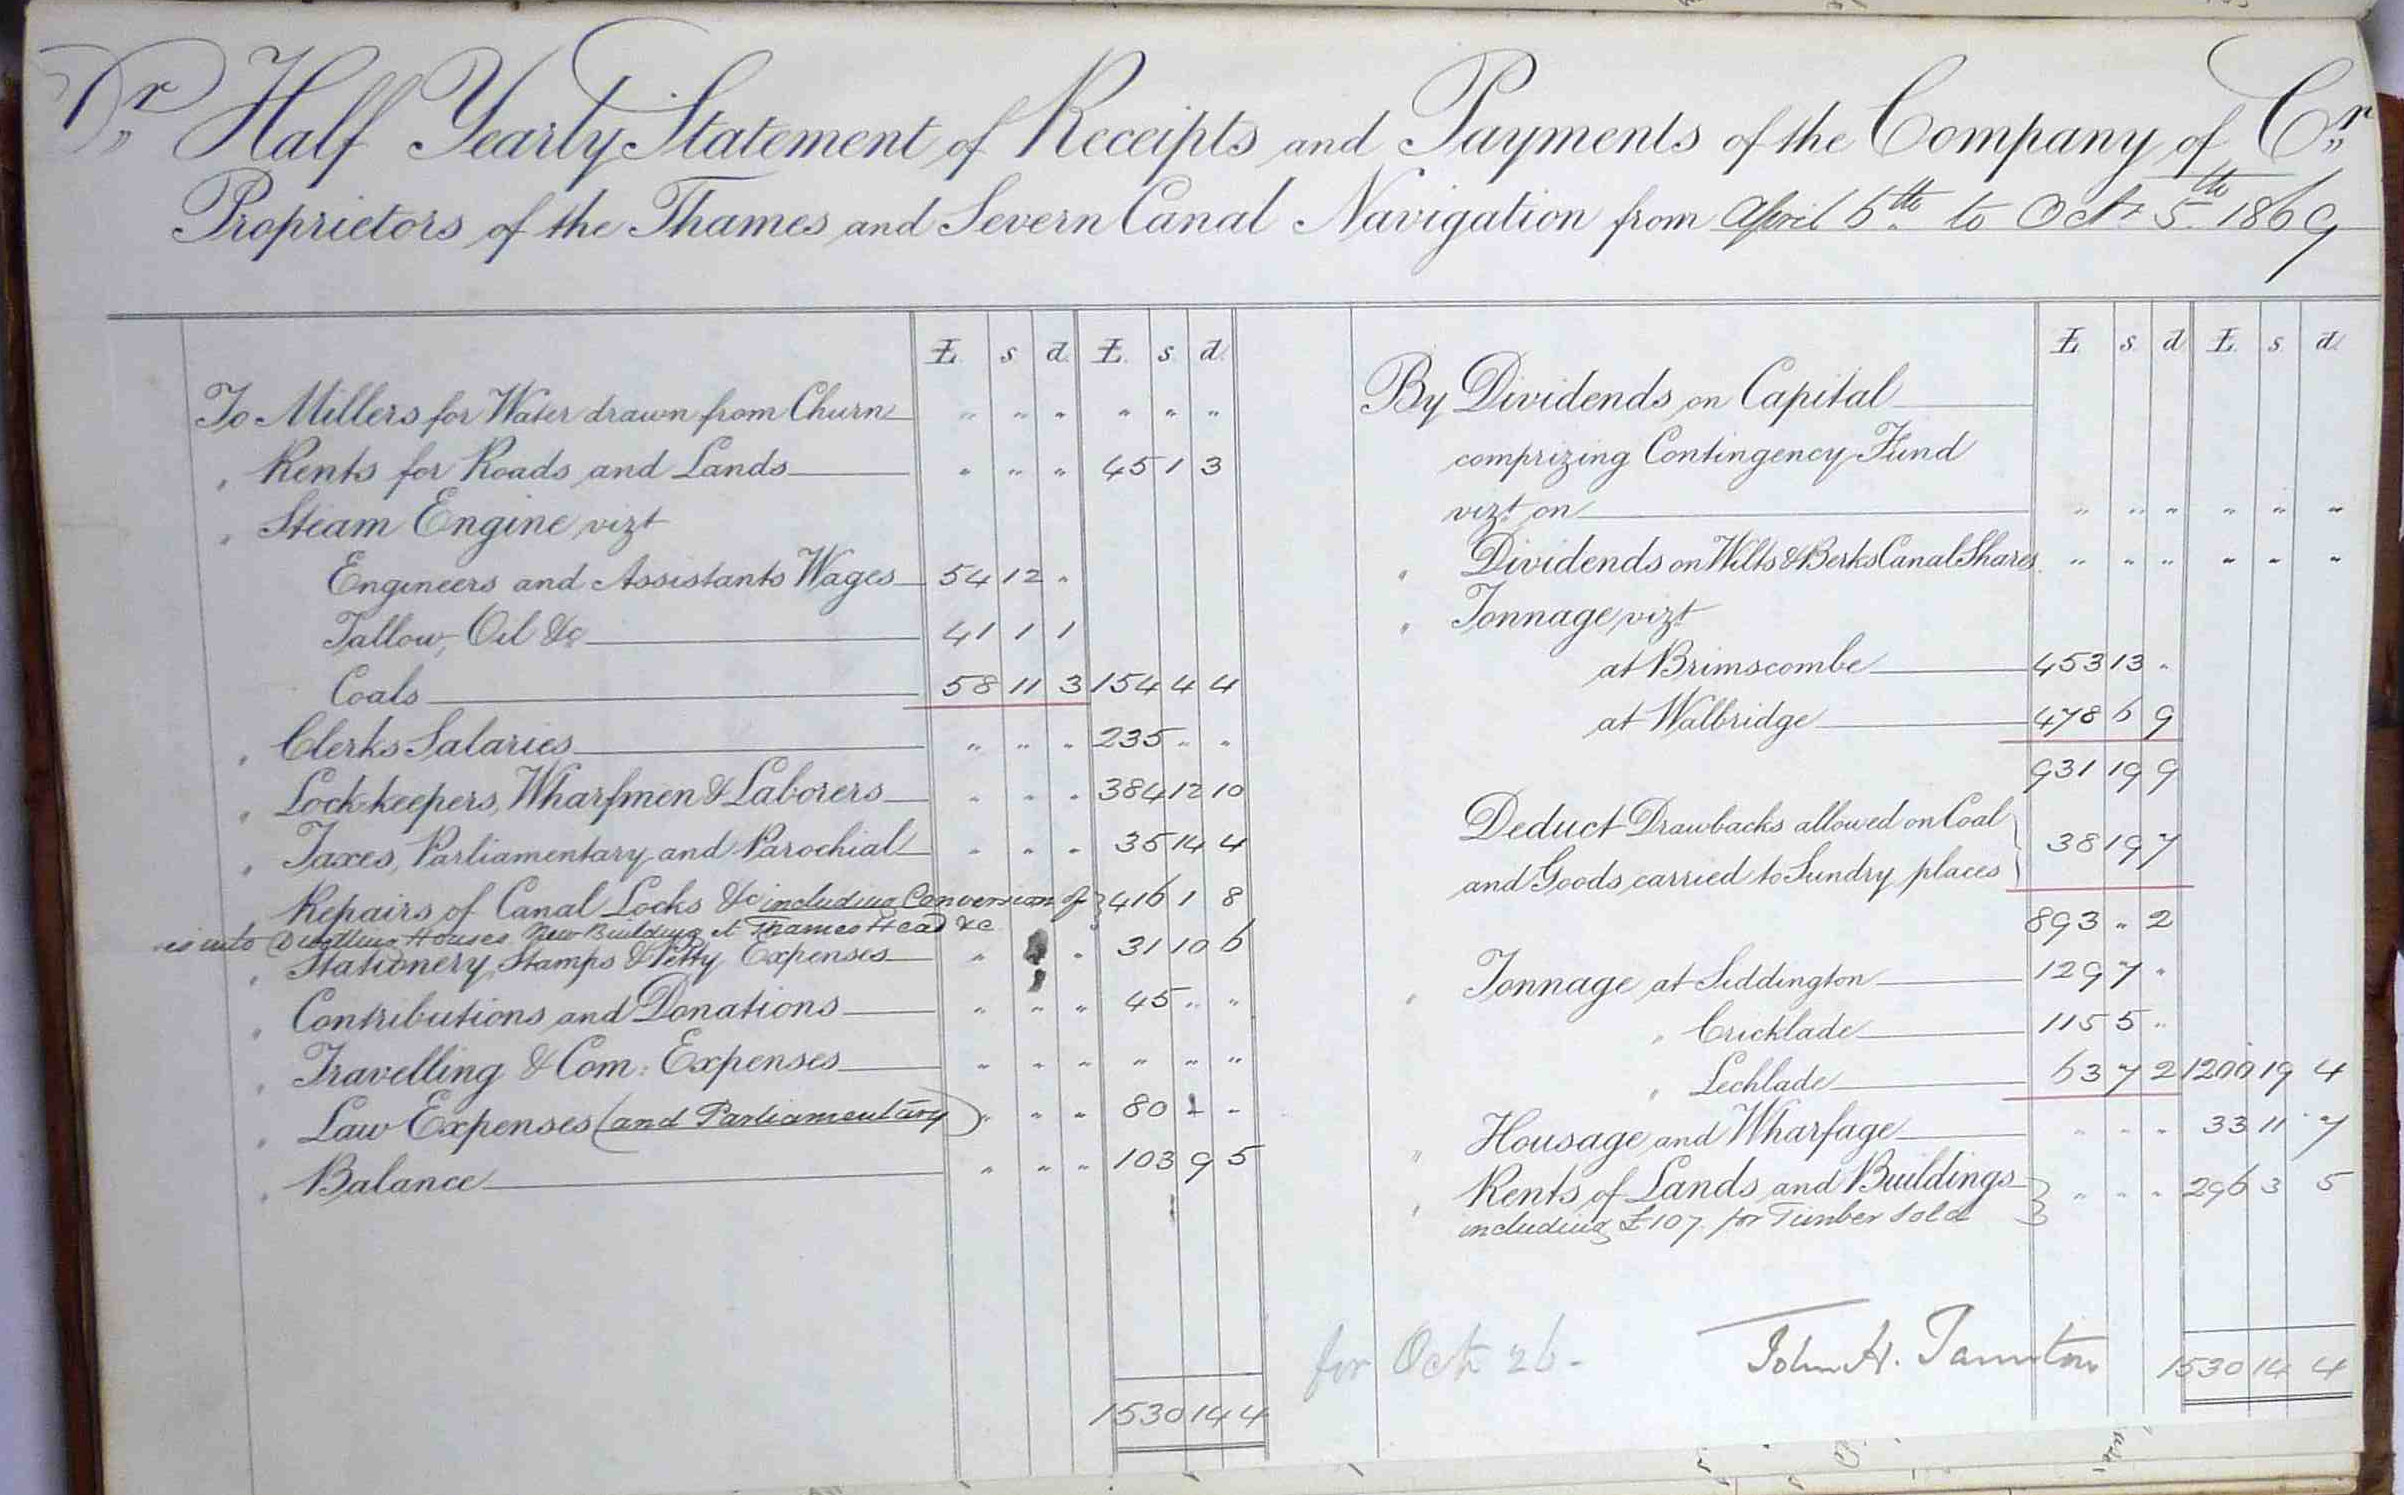 Dr Half Yearly Statement of Receipts and Payments of the Company of Cr
Proprietors of the Thames and Severn Canal Navigation from April 6th to Oct 5th 1869
£ s d £ s d
To Millers for Water drawn from Churn " " " " " "
" Rents for Roads and Lands " " " 45 1 3
" Steam Engine vizt
Engineers and Assistants Wages 54 12 "
Tallow, Oil &c 41 1 1
Coals 58 11 3 154 4 4
" Clerks Salaries " " " 235 " "
" Lock-keepers, Wharfmen & Laborers " " " 384 12 10
" Taxes, Parliamentary and Parochial " " " 35 14 4
" Repairs of Canal Locks &c including Conversion of } 416 1 8
into Dwelling Houses New Building at Thames Head &c
" Stationery, Stamps & Petty Expenses " " 31 10 6
" Contributions and Donations " " " 45 " "
" Travelling & Com: Expenses " " " " " "
" Law Expenses (and Parliamentary) " " " 80 - -
" Balance " " " 103 9 5
1530 14 4
£ s d £ s d
By Dividends on Capital
comprizing Contingency Fund
vizt on " " " " " "
" Dividends on Wilts & Berks Canal Shares " " " " " "
" Tonnage vizt
at Brimscombe 453 13 "
at Walbridge 478 6 9
931 19 9
Deduct Drawbacks allowed on Coal
and Goods carried to Sundry places } 38 19 7
893 " 2
" Tonnage at Siddington 129 7 "
" Cricklade 115 5 "
" Lechlade 63 7 2 1200 19 4
" Housage and Wharfage " " " 33 11 7
" Rents of Lands and Buildings } " " " 296 3 5
including £107 for Timber Sold
for Oct 26 - John H. Taunton 1530 14 4